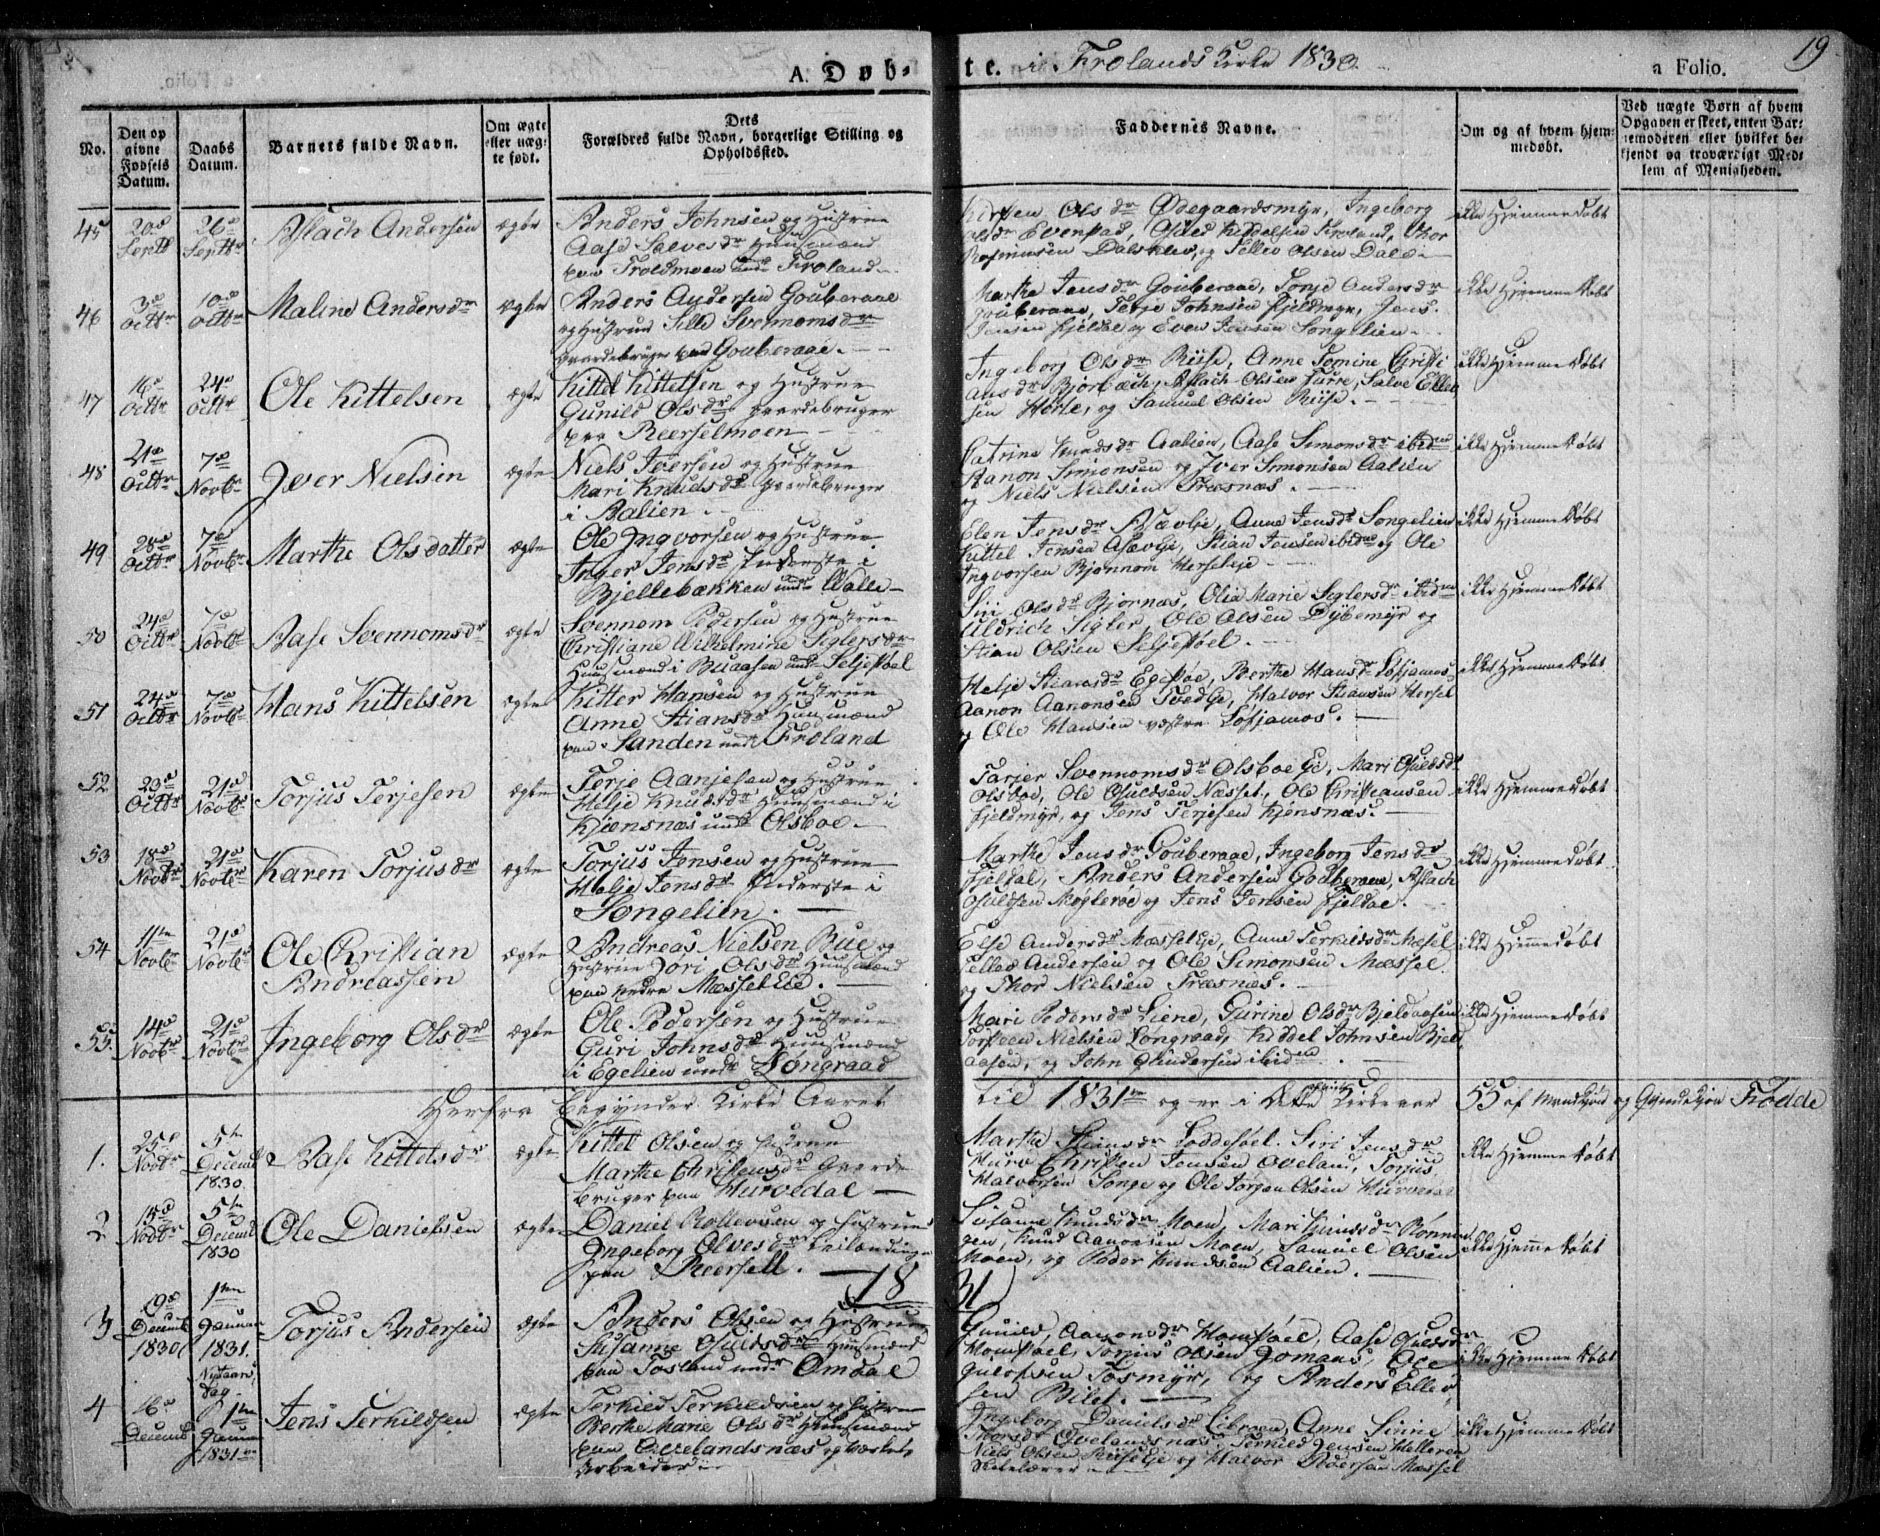 A. Døb- te. i Frolands Kirke 1830. a Folio. 19
No.
Den op
givne
Fødsels
Datum.
Daabs
Datum.
Barnets fulde Navn.
Om ægte
eller uæg-
te født.
Dets
Forældres fulde Navn, borgerlige Stilling og
Opholdssted.
Faddernes Navne.
Om og af hvem hjem-
medøbt.
Ved uægte Børn af hvem
Opgaven er skeet, enten Bar-
nemoderen eller hvilket be-
kjendt og troværdigt Med-
lem af Menigheden.
45 20d Septr 26d Septr Aslach Andersen ægte
Anders Johnsen og Hustrue
Aase Salvesdr Huusmænd
paa Troldmoen unde Froland
Olsdr Ødegaardsmyr, Ingeborg
Olsdr Evenstad, Kiddelsen Froland, Thor
Dalsklev, og Tellev Olsen Dale
ikke Hjemmedøbt
46 3d Octbr 10d Octbr Maline Andersdr ægte
Anders Andersen Gouberaae
og Hustrue Sille Svennomsdr
Gaardbruger paa Gouberaae.
Marthe Jensdr Gouberaae, Tonje Andersdr
Gouberaae, Terje Johnsen Fjeldmyr, Jens
Jensen Fjeldal og Even Jensen Songelien
ikke Hjemmedøbt
47 16d Octbr 24d Octbr Ole Kittelsen ægte
Kittel Kittelsen og Hustrue
Gunild Olsdr Gaardebruger
paa Reerselmoen
Ingeborg Olsdr Riise, Anne Tomine Christi
ansdr Bjorbæch, Aslach Olsen Furre, Salve Ellev
sen Hørte, og Samuel Olsen Riise.
ikke Hjemmedøbt
48 21d Octbr 7d Novbr Iver Nielsen ægte
Niels Iversen og Hustrue
Mari Knudsdr Gaardebruger
i Aalien.
Catrine Knudsdr Aalien, Aase Simonsdr ibidm
Aanon Simonsen og Iver Simonsen Aalien
og Niels Nielsen Træsnæs.
ikke Hjemmedøbt
49 28d Octbr 7d Novbr Marthe Olsdatter ægte
Ole Ingvorsen og Hustrue
Inger Jensdr Inderste i
Bjellebækken unde Walle
Elen Jensdr Asævlie, Anne Jensdr Songelien
Kittel Jensen Asævlie, Stian Jensen ibidm og Ole
Ingvorsen Bjønnom Herseleje
ikke Hjemmedøbt
50 24d Octbr 7d Novbr Aase Svennomsdr ægte
Svennom Pedersen og Hustrue
Christiane Wilhelmine Siglersdr
Huusmænd i Buaasen unde Seljestøel
Siri Olsdr Bjornæs, Olia Marie Siglersdr ibidm
Aldrich Sigler, Ole Olsen Dybemyr og
Stian Olsen Seljestøel.
ikke Hjemmedøbt
51 24d Octbr 7d Novbr Hans Kittelsen ægte
Kittel Hansen og Hustrue
Anne Stiansdr Huusmænd
paa Sanden unde Froland
Helje Stiansdr Egestøe, Berthe Hansdr Løfjamos,
Aanon Aanonsen Tvedeje, Halvor Stiansen Hersel
og Ole Hansen vestre Løfjamos.
ikke Hjemmedøbt
52 23d Octbr 21d Novbr Torjus Terjesen ægte
Terje Aanjesen og Hustrue
Helje Knudsdr Huusmænd i
Kjønsnæs unde Olsboe.
Tarjer Svennomsdr Olsboe Eje, Mari Osuldsdr
Olsboe, Ole Osuldsen Næsset, Ole Christiansen
Fjeldmyr, og Jens Terjesen Kjønsnæs.
ikke Hjemmedøbt
53 18d Novbr 21d Novbr Karen Torjusdr ægte
Torjus Jensen og Hustrue
Helje Jensdr Inderste i
Songelien.
Marthe Jensdr Gouberaae, Ingeborg Jensdr
Fjeldal, Anders Andersen Gouberaae, Aslach
Osuldsen Møglerøe og Jens Jensen Fjeldal.
ikke Hjemmedøbt
54 11te Novbr 21d Novbr Ole Christian
Andreassen ægte
Andreas Nielsen Bue og
Hustrue Jøri Olsdr Huusmænd
paa Nedre Mæssel Eie.
Else Andersdr Mæssel Eje, Anne Terkildsdr Mæsel
Tellev Andersen og Ole Simonsen Mæssel
og Thor Nielsen Træsnæs.
ikke Hjemmedøbt
55. 14d Novbr 21d Novbr Ingeborg Olsdr ægte
Ole Pedersen og Hustrue
Guri Johnsdr Huusmænd
i Egelsien unde Løngraad
Mari Pedersdr Liene, Gurine Olsdr Bjeldaasen
Torsten Nielsen Løngraad, Kiddel Johnsen Bjeld
aasen, og John Gundersen ibidm
ikke Hjemmedøbt
Herfra Begynder Kirke Aaret til 1831te og er i dette Kirke aar 55 af Mandkjøn og Qvindekjøn Fødde
1. 25d Novbr 5te Decemb 1830 Aase Kittelsdr ægte
Kittel Olsen og Hustrue
Marthe Christensdr Gaarde
bruger paa Hurvedal
Marthe Loddesøel. Siri Jensdr
Hurv Christen Jensen Oveland, Torjus
Halvorsen Songe og Ole Jørgen Olsen Hurvedal
ikke Hjemmedøbt
2 15d Novbr 5te Decemb 1830 Ole Danielsen ægte
Daniel Rollevsen og Hustrue
Ingeborg Olvesdr
paa Reersell.
Susanne Knudsdr Moen, Mari Knudsdr Rønnin
gen, Knud Aanonsen Moen, Samuel Olsen
Moen, og Peder Knudsen Aalien.
ikke Hjemmedøbt
1831
3 19d Decemb 1830 1ten Januar 1831. Nytaars dag Torjus Andersen ægte
Anders Olsen og Hustrue
Susanne Osuldsdr Huusmænd
paa Tosland unde Omdal
Gunild Aanonsdr Homstøel, Aase Osuldsdr
Homstøel, Torjus Olsen Jomaas, Ole
Gulofsen Tosmyr, og Anders Ellev
sen Bilet.
ikke Hjemmedøbt
4 16d Decemb 1ten Januar 1831te Jens Terkildsen ægte
Terkild Terkildsen og Hustrue
Berthe Marie Olsdr Huusmænd
paa Ovelandsnæs og
Arbeider
Ingeborg Danielsdr Libroen, Anne Sirine
Thorsdr Ovelandsnæs, Terkild Jensen Helleren
Niels Olsen Riise Eje og Halvor Pedersen Mæssel
Skolelærer
ikke Hjemmedøbt